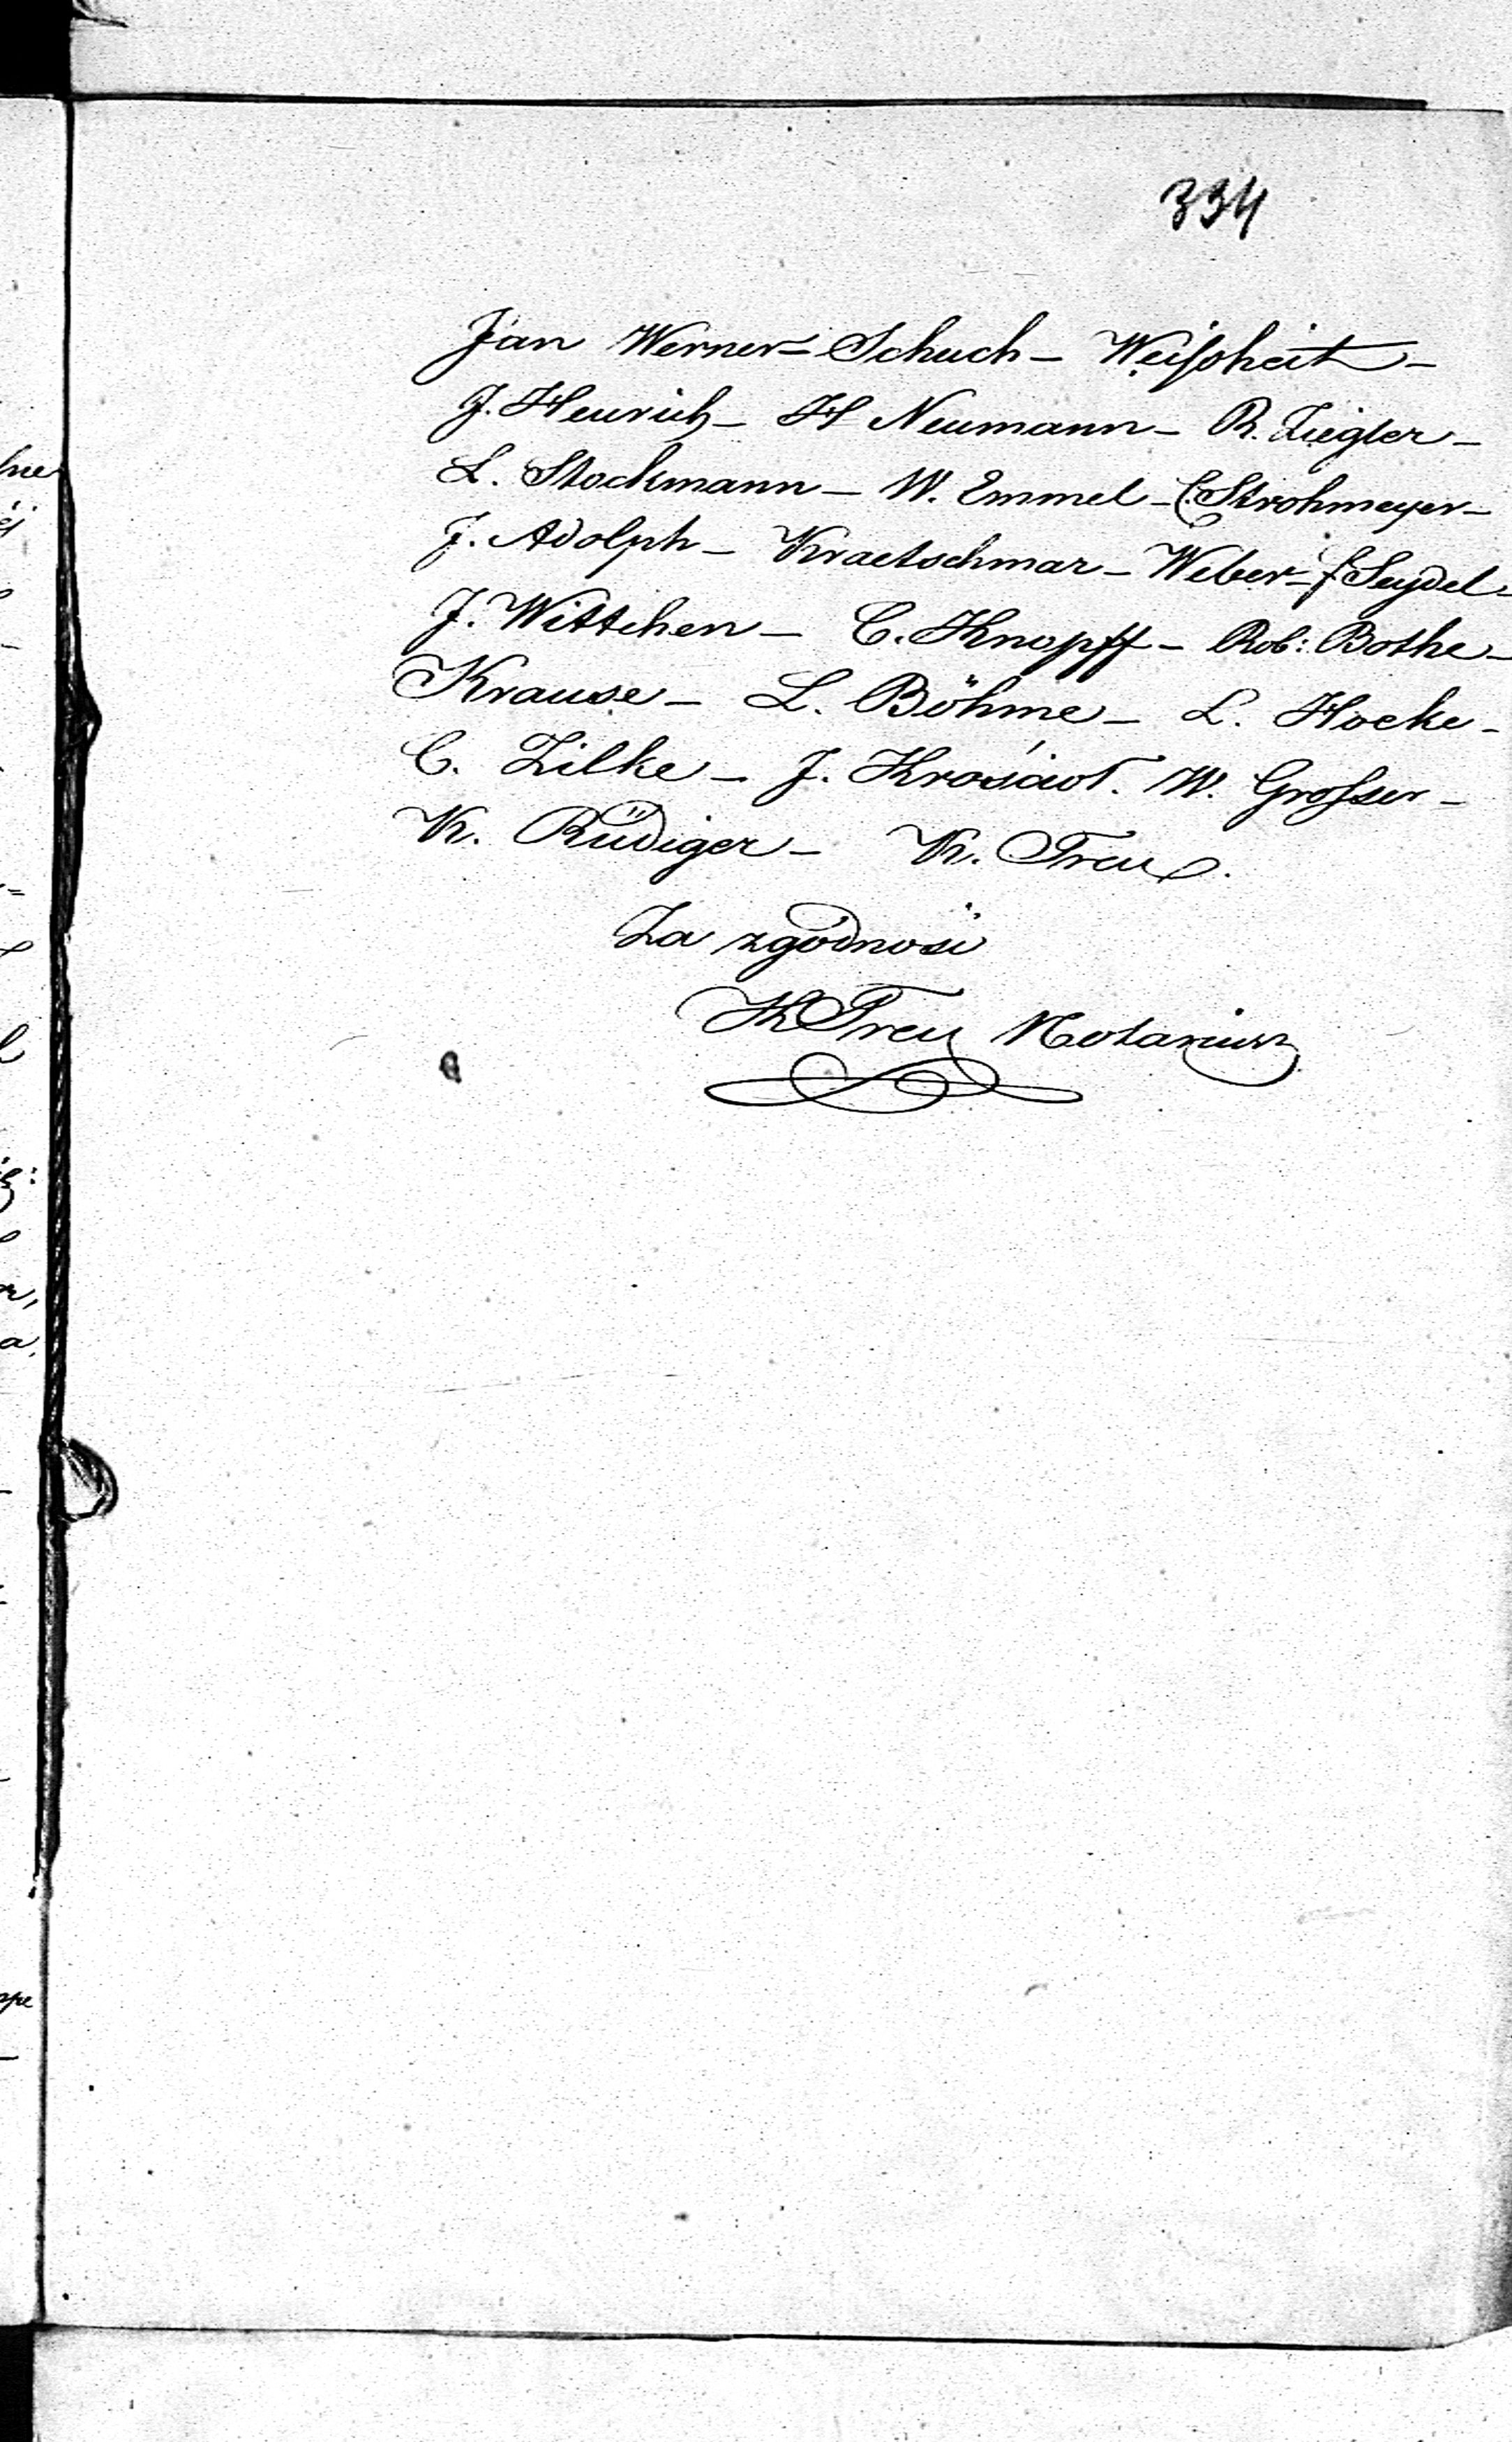 334
Jan Werner – Schuch – Weißheit –
J. Heurich – H Neumann – R. Ziegler –
L. Stockmann – W. Emmel – C. Strohmeyer –
J. Adolph – Kraetschmar – Weber – f Seydel –
J. Wittchen – C. Knopff – Rob: Bothe –
Krause – L. Böhme – L. Hocke –
C. Zilke – J. W. Großer –
K. Rüdiger – K. Treu.
Za zgodność
KTreu Notariusz